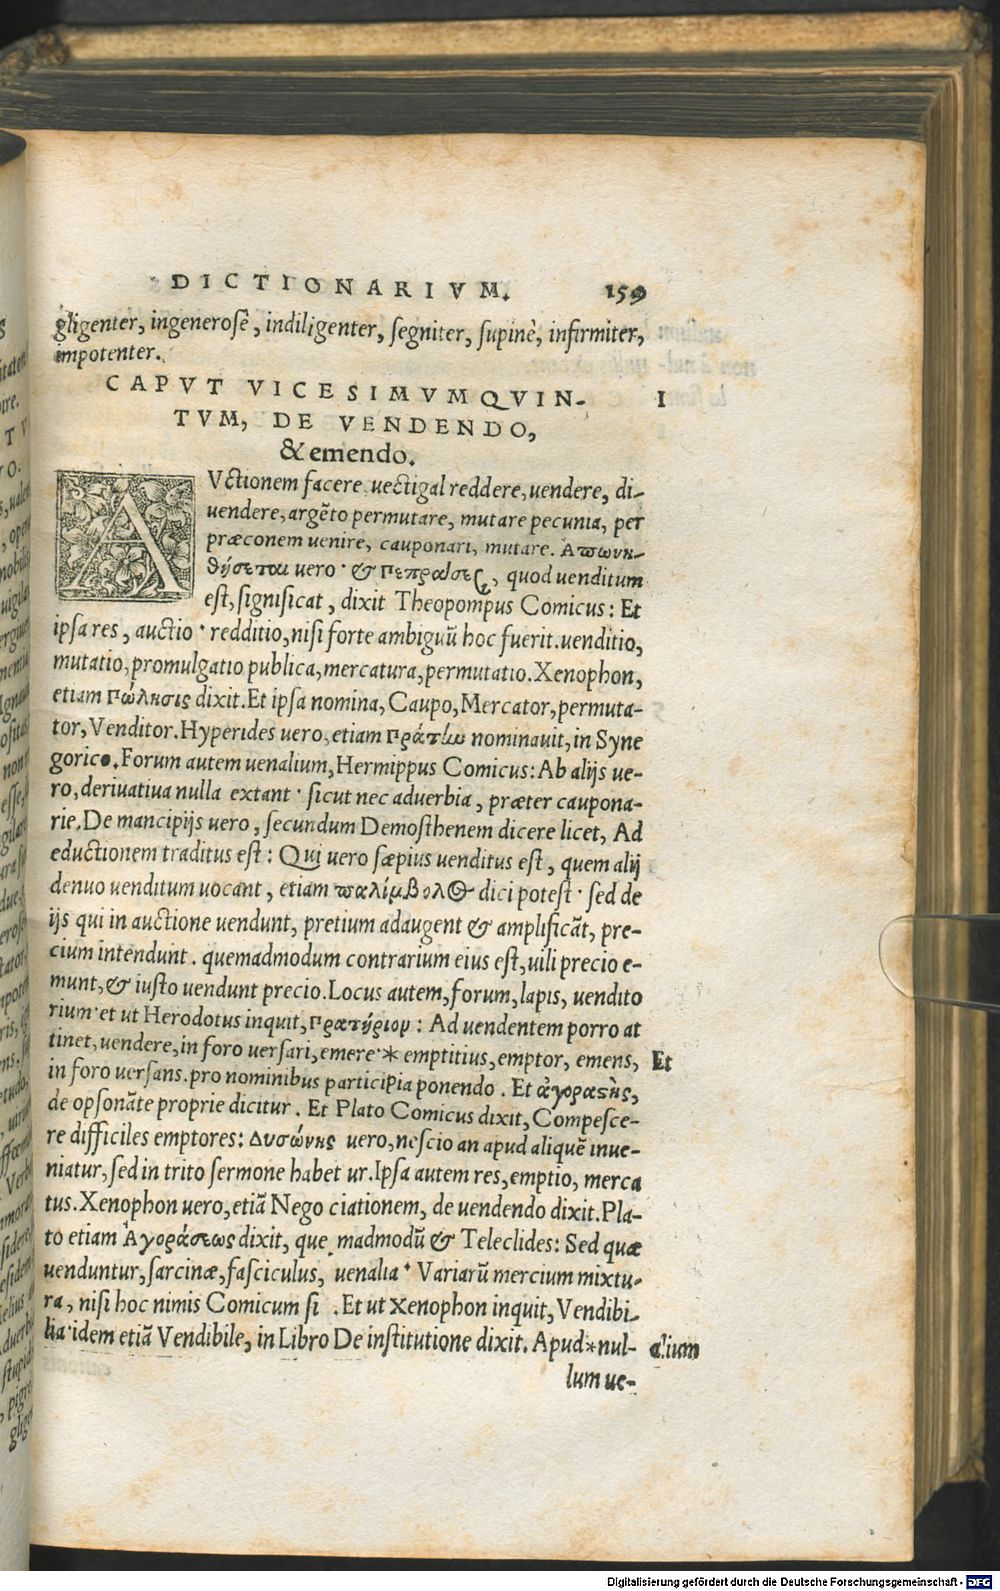 DICTIONARIVM. 159
gligenter, ingenerosè, indiligenter, segniter, supinè, infirmiter,
impotenter.
CAPVT VICESIMVMQVIN- I
TVM, DE VENDENDO,
& emendo.
AVctionem facere, uectigal reddere, uendere, di-
uendere, argẽto permutare, mutare pecunia, per
præconem uenire, cauponari, mutare. Ἀπωνη-
θήσεται uero· & Πεπράσεται, quod uenditum
est, significat, dixit Theopompus Comicus: Et
ipsa res, auctio· redditio, nisi forte ambiguũ hoc fuerit. uenditio,
mutatio, promulgatio publica, mercatura, permutatio. Xenophon,
etiam Πώλησις dixit. Et ipsa nomina, Caupo, Mercator, permuta-
tor, Venditor. Hyperides uero, etiam Πράτίω nominauit, in Syne
gorico. Forum autem uenalium, Hermippus Comicus: Ab alijs ue-
ro, deriuatiua nulla extant· sicut nec aduerbia, præter caupona-
rie. De mancipijs uero, secundum Demosthenem dicere licet, Ad
eductionem traditus est: Qui uero sæpius uenditus est, quem alij
denuo uenditum uocant, etiam παλίμβολος dici potest· sed de
ijs qui in auctione uendunt, pretium adaugent & amplificãt, pre-
cium intendunt. quemadmodum contrarium eius est, uili precio e-
munt, & iusto uendunt precio. Locus autem, forum, lapis, uendito
rium· et ut Herodotus inquit, Πρατήριον: Ad uendentem porro at
tinet, uendere, in foro uersari, emere·* emptitius, emptor, emens, Et
in foro uersans. pro nominibus participia ponendo. Et ἀγοραστὴς,
de opsonãte proprie dicitur. Et Plato Comicus dixit, Compesce-
re difficiles emptores: Δυσώνης uero, nescio an apud aliquẽ inue-
niatur, sed in trito sermone habet ur. Ipsa autem res, emptio, merca
tus. Xenophon uero, etiã Nego ciationem, de uendendo dixit. Pla-
to etiam Ἀγοράσεως dixit, que madmodũ & Teleclides: Sed quæ
uenduntur, sarcinæ, fasciculus, uenalia· Variarũ mercium mixtu-
ra, nisi hoc nimis Comicum si . Et ut Xenophon inquit, Vendibi-
lia· idem etiã Vendibile, in Libro De institutione dixit. Apud*nul- alium
lum ue-
Digitalisierung gefördert durch die Deutsche Forschungsgemeinschaft - DFG